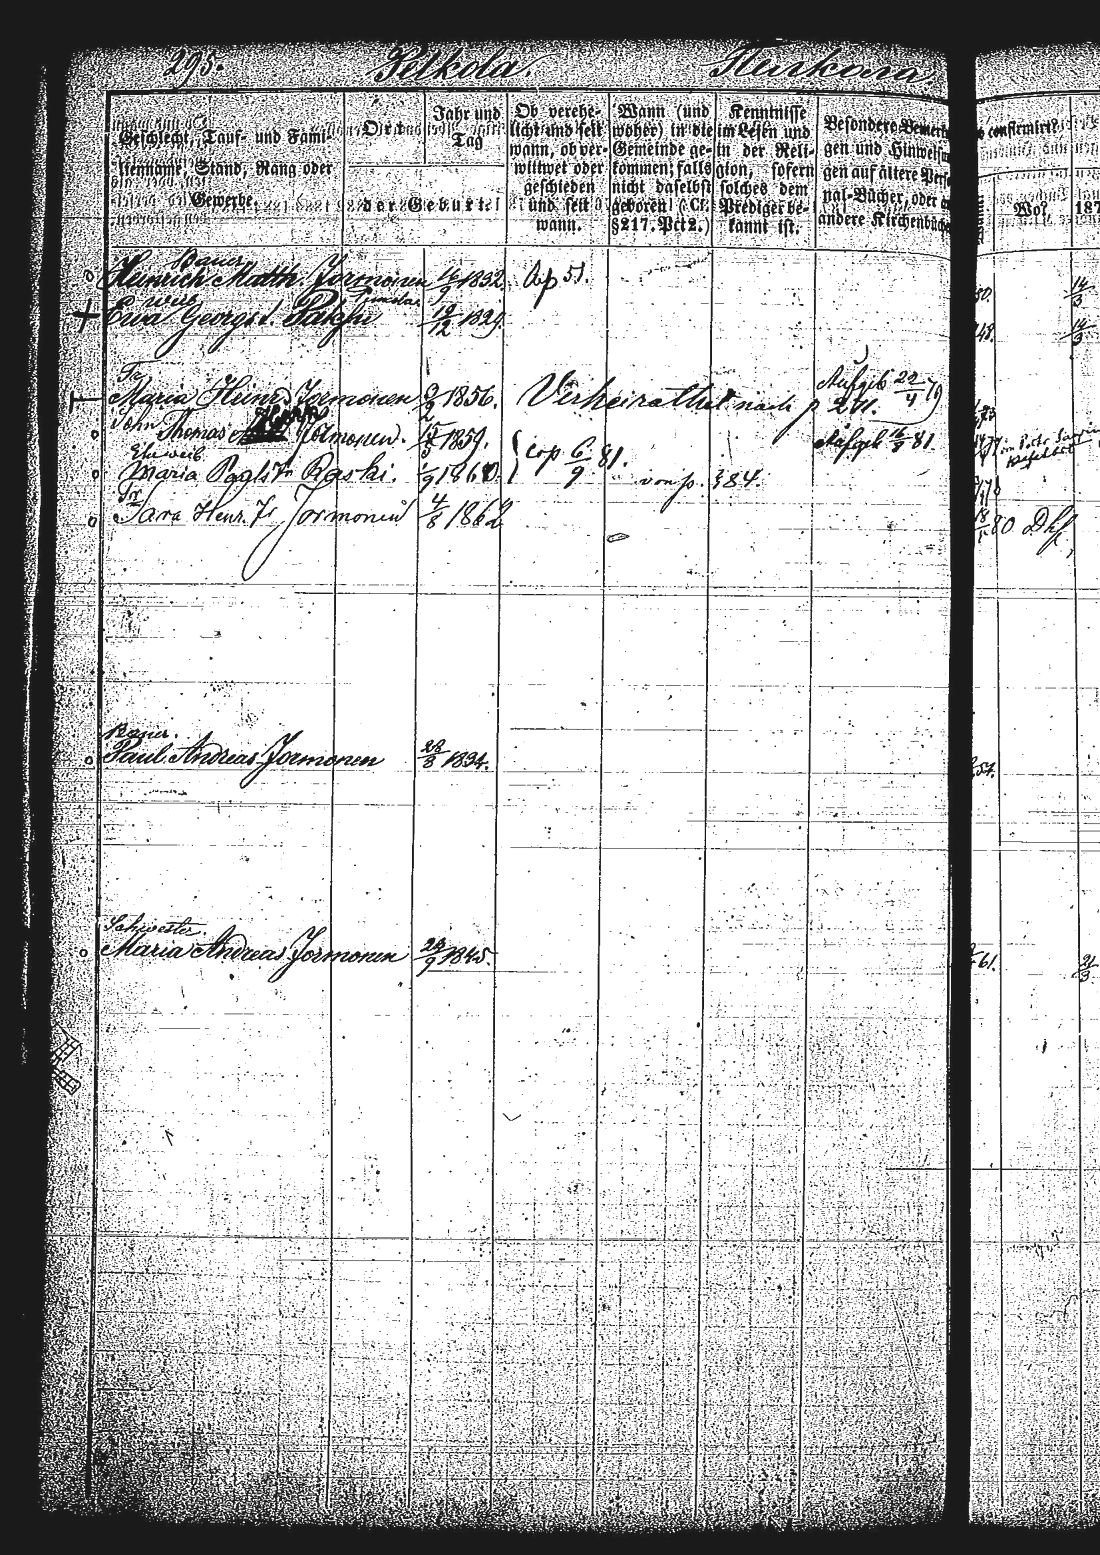 295. Pelkola.
Geschlecht, Tauf- und Fami-
liename, Stand, Rang oder
Gewerbe.
Ort
Jahr und
Tag
der Geburt.
Ob verehe-
licht und seit
wann, ob ver-
wittwet oder
geschieden
und seit
wann.
Wann (und
woher) in die
Gemeinde ge-
kommen; falls
nicht daselbst
geboren (Cf.
§217. Pct 2.)
Kenntnisse
im Lesen und
in der Reli-
gion, sofern
solches dem
Prediger be-
kannt ist.
Besondere Bemerk
gen und Hinweisu
gen auf ältere Perso
nal-Bücher, oder a
andere Kirchenbüche
confirmirt?
Wo?
187
Bauer
Heinrich Matth. Jormonen 16/9 1832. Cop 51.
80. 14/3
weib
Ewa Georgs t. 12/12 1829.
48. 14/3
Tr
Maria Heinr. Jormonen 1856. Verheirathet nach p 211. Aufgeb 22/4 79
Sohn Thomas Jormonen. 1859. Aufgeb 81.
Eheweib
Maria Pauls Tr Raski. 1/9 1860. cop 6/9 81. von p. 384.
Tr
Sara Heinr. Tr Jormonen 4/8 1862
80
Bauer.
Paul Andreas Jormonen 28/3 1834.
57.
Schwester.
Maria Andreas Jormonen 24/9 1845.
61. 21/3